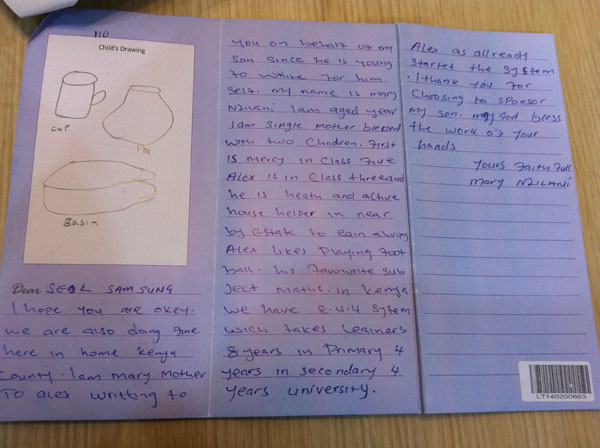 110
Child's Drawing
cup
Pot
Basin
Dear SEOL SAM SUNG
I hope you are okey.
we are also doing fine
here in home kenya
County. I am mary mother
To alex writting to
You on behalf of my
Son since he is young
to write for him
Self. my name is mary
Nzilani I am aged year
I am single mother blessed
with two Children. First
is mercy in Class Five
Alex is in Class three and
he is heath and active
house helper in near
by Estate to earn a living
Alex likes playing foot
ball. his favourite sub
ject maths. in kenya
we have 8.4.4 System
wich takes Learners
8 years in Primary 4
years in secondary 4
years university.
Alex as allready
startet the system
. I thank you for
Choosing to sponsor
my son. may god bless
the work of your
hands
Yours Faith full
mary NZILANI
LT140200663